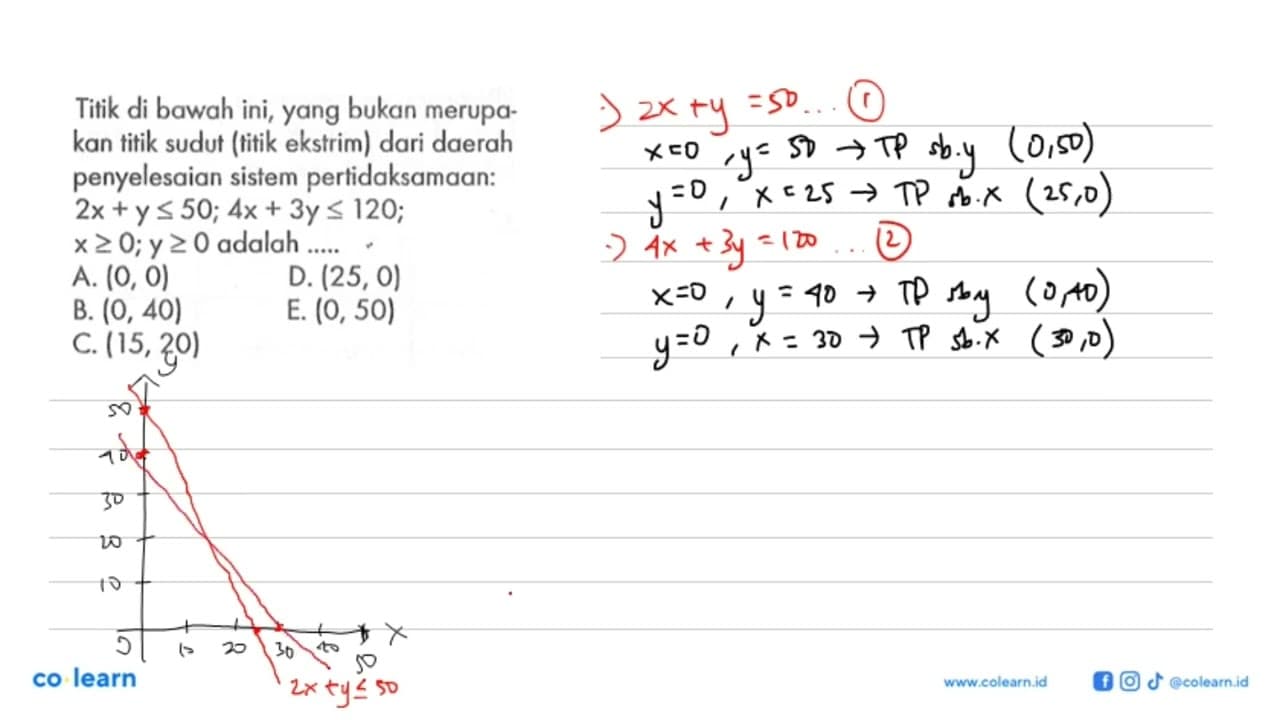 Titik di bawah ini, yang bukan merupa-
kan titik sudut (titik ekstrim) dari daerah
penyelesaian sistem pertidaksamaan:
2x + y ≤ 50; 4x + 3y ≤ 120;
x ≥ 0; y ≥ 0 adalah .....
A. (0, 0) D. (25, 0)
B. (0, 40) E. (0, 50)
C. (15, 20)
·) 2x + y = 50 ... ①
x=0 , y= 50 → TP sb.y (0,50)
y=0 , x = 25 → TP sb.x (25,0)
·) 4x + 3y = 120 ... ②
x=0 , y = 40 → TP sb y (0,40)
y=0 , x = 30 → TP sb.x (30,0)
y
50
40
30
20
10
0 10 20 30 40 50 x
2x + y ≤ 50
co learn
www.colearn.id @colearn.id